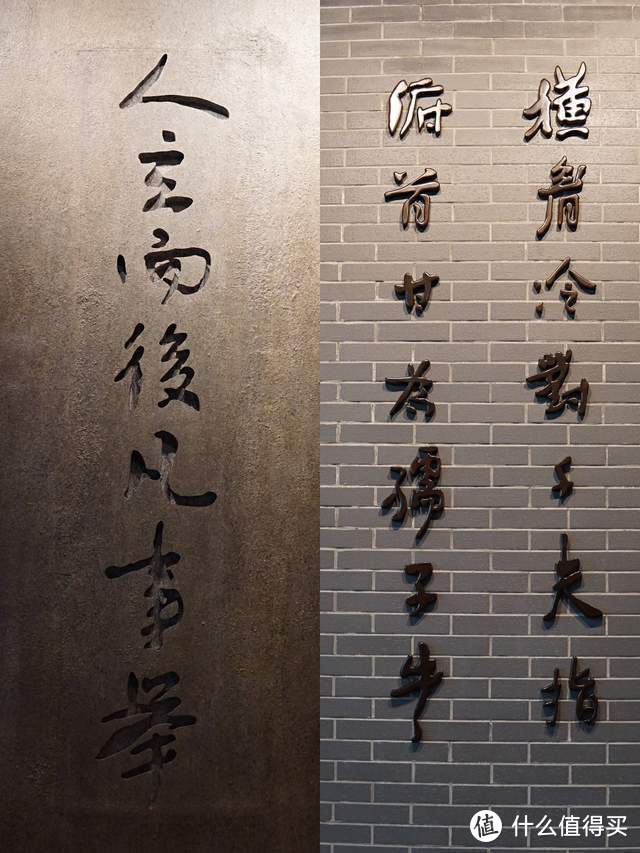 人立而後凡事舉
橫眉冷對千夫指
俯首甘為孺子牛
值 什么值得买